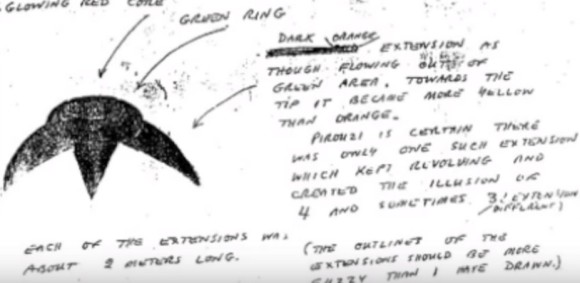 GLOWING RED CORE
GREEN RING
DARK ORANGE
EXTENSION AS
THOUGH FLOWING OUT OF
GREEN AREA. TOWARDS THE
TIP IT BECAME MORE YELLOW
THAN ORANGE.
PIROUZI IS CERTAIN THERE
WAS ONLY ONE SUCH EXTENSION
WHICH KEPT REVOLVING AND
CREATED THE ILLUSION OF
4 AND SOMETIMES 3! EXTENSION
DIFFERENT)
EACH OF THE EXTENSIONS WAS
ABOUT 2 METERS LONG.
(THE OUTLINES OF THE
EXTENSIONS SHOULD BE MORE
FUZZY THAN I HAVE DRAWN.)